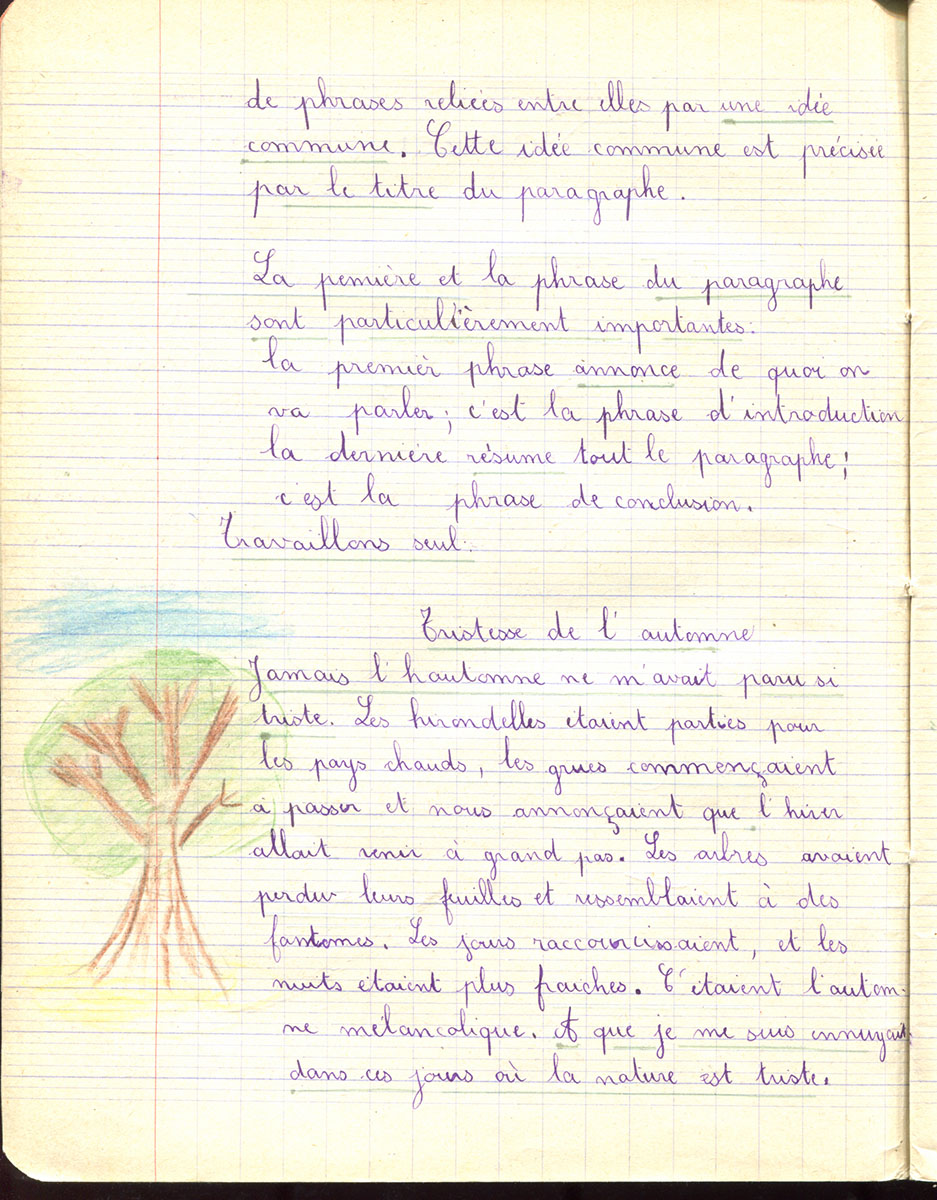 de phrases reliées entre elles par une idée
commune. Cette idée commune est précisée
par le titre du paragraphe.
La pemière et la phrase du paragraphe
sont particulièrement importantes:
la premièr phrase annonce de quoi on
va parler; c'est la phrase d'introduction
la dernière résume tout le paragraphe;
c'est la phrase de conclusion.
Travaillons seul:
Tristesse de l'automne
Jamais l'hautomne ne m'avait paru si
triste. Les hirondelles étaient parties pour
les pays chauds, les grues commençaient
à passer et nous annonçaient que l'hiver
allait venir à grand pas. Les arbres avaient
perdur leurs feuilles et ressemblaient à des
fantomes. Les jours raccourcissaient, et les
nuits étaient plus fraiches. C'étaient l'autom-
ne mélancolique. A que je me suis ennuyait
dans ces jours où la nature est triste.